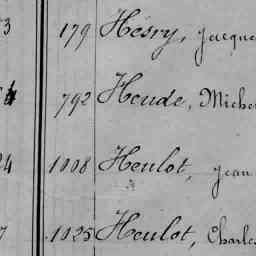 3 179 Hesry, Jacque
4 792 Heude, Miche
24 1008 Heulot, Jean
7 1025 Heulot, Charles